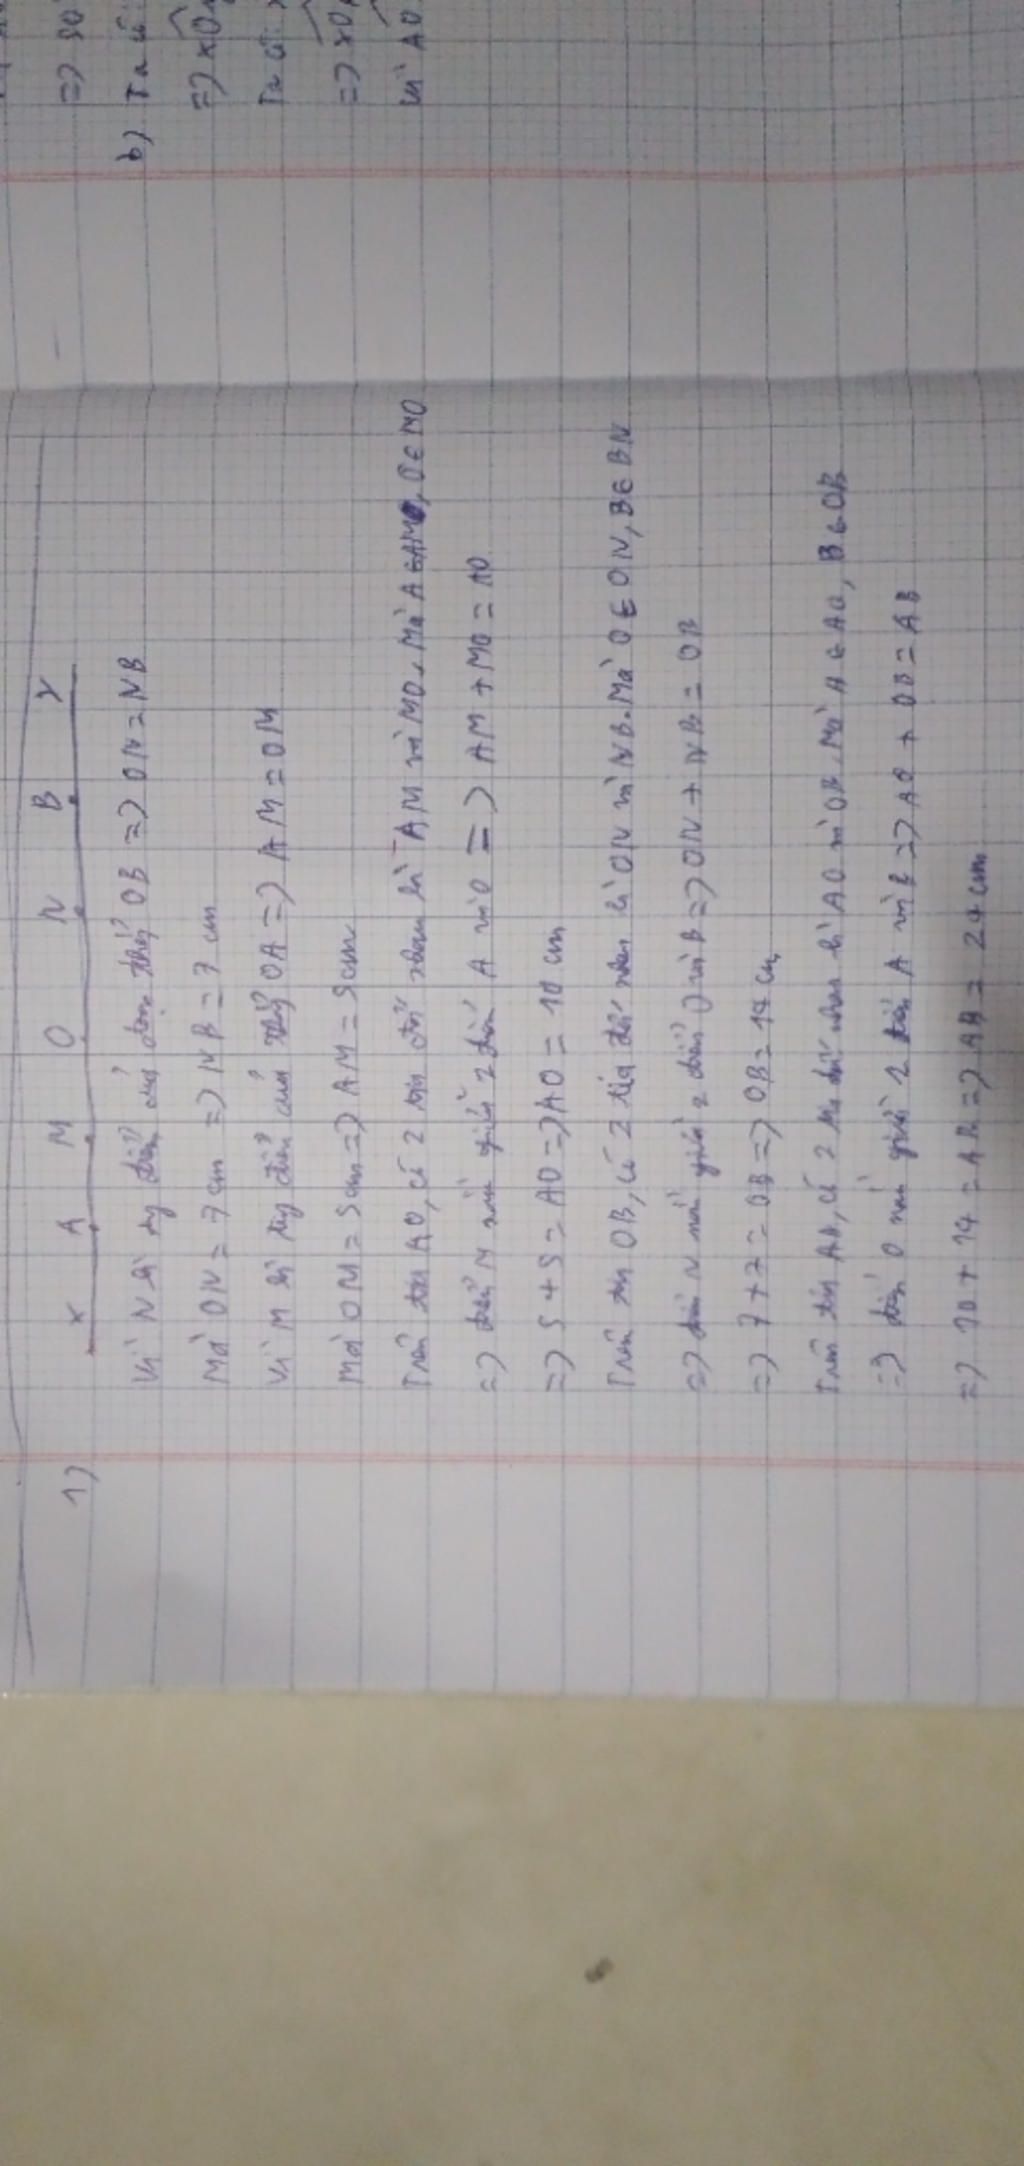 1)
x A M O N B y
Vì N là trung điểm của đoạn thẳng OB => ON = NB
Mà ON = 7 cm => NB = 7 cm
Vì M là trung điểm của OA => AM = OM
Mà OM = 5 cm => AM = 5 cm
Trên AO, có 2 tia đối nhau là AM và MO. Mà A ∈ AM, O ∈ MO
=> điểm M nằm giữa 2 điểm A và O => AM + MO = AO
=> 5 + 5 = AO => AO = 10 cm
Trên OB, có 2 tia đối nhau là ON và NB. Mà O ∈ ON, B ∈ BN
=> điểm N nằm giữa 2 điểm O và B => ON + NB = OB
=> 7 + 7 = OB => OB = 14 cm
Trên AB, có 2 tia đối nhau là AO và OB. Mà A ∈ AO, B ∈ OB
=> điểm O nằm giữa 2 điểm A và B => AO + OB = AB
=> 10 + 14 = AB => AB = 24 cm
b) Ta có:
=> xO
Ta có:
=> xO
vì AO